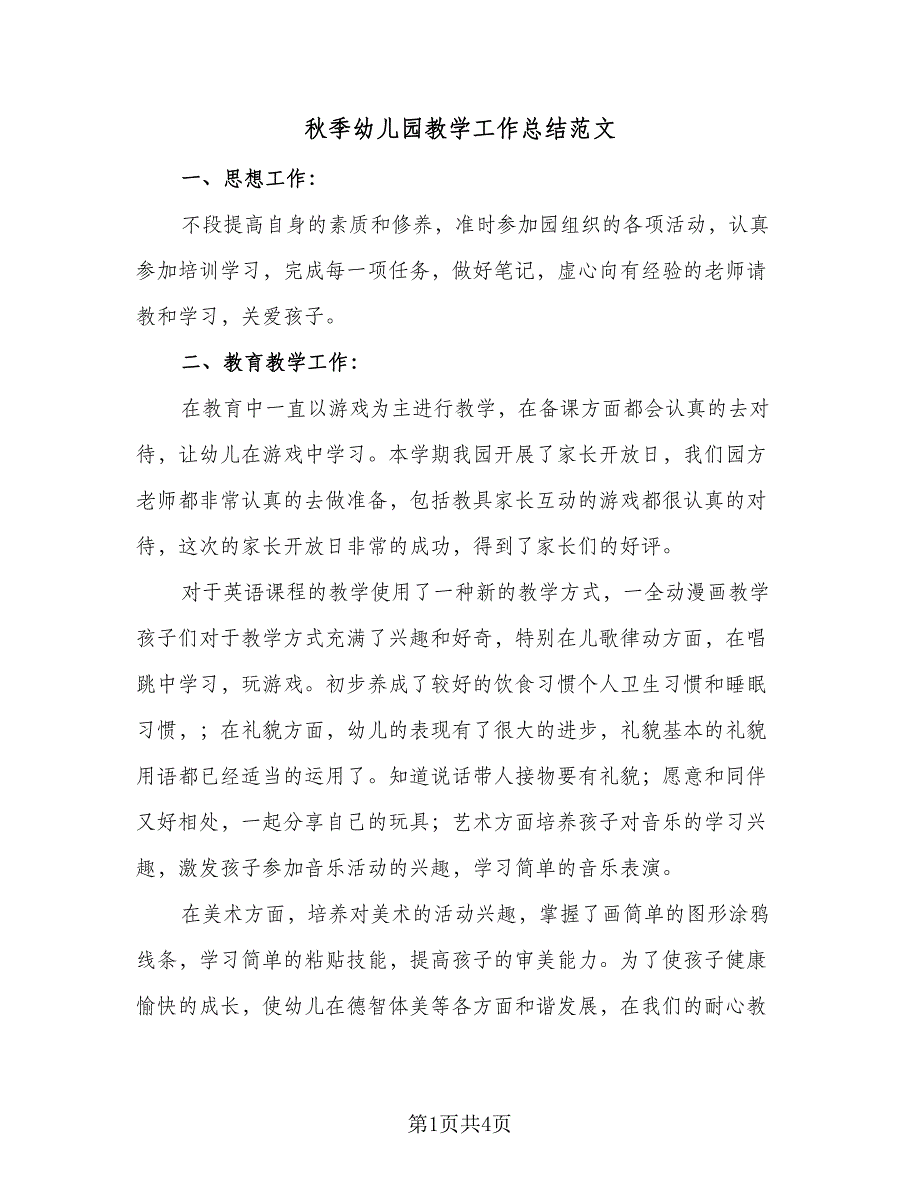 秋季幼儿园教学工作总结范文
一、思想工作：
不段提高自身的素质和修养，准时参加园组织的各项活动，认真
参加培训学习，完成每一项任务，做好笔记，虚心向有经验的老师请
教和学习，关爱孩子。
二、教育教学工作：
在教育中一直以游戏为主进行教学，在备课方面都会认真的去对
待，让幼儿在游戏中学习。本学期我园开展了家长开放日，我们园方
老师都非常认真的去做准备，包括教具家长互动的游戏都很认真的对
待，这次的家长开放日非常的成功，得到了家长们的好评。
对于英语课程的教学使用了一种新的教学方式，一全动漫画教学
孩子们对于教学方式充满了兴趣和好奇，特别在儿歌律动方面，在唱
跳中学习，玩游戏。初步养成了较好的饮食习惯个人卫生习惯和睡眠
习惯，；在礼貌方面，幼儿的表现有了很大的进步，礼貌基本的礼貌
用语都已经适当的运用了。知道说话带人接物要有礼貌；愿意和同伴
又好相处，一起分享自己的玩具；艺术方面培养孩子对音乐的学习兴
趣，激发孩子参加音乐活动的兴趣，学习简单的音乐表演。
在美术方面，培养对美术的活动兴趣，掌握了画简单的图形涂鸦
线条，学习简单的粘贴技能，提高孩子的审美能力。为了使孩子健康
愉快的成长，使幼儿在德智体美等各方面和谐发展，在我们的耐心教
第1页共4页